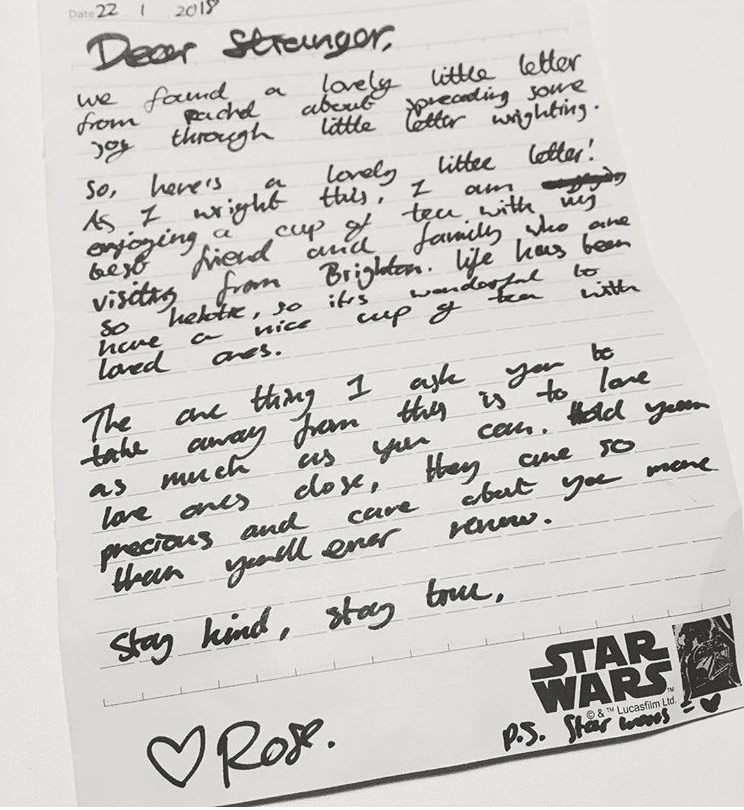 Date 22 1 2018
Dear Stranger,
we found a lovely little letter
from Rachel about spreading some
joy through little letter wrighting.
So, here's a lovely littee letter!
As I wright this, I am
enjoying a cup of tea with my
best friend and family who are
visiting from Brighton. life has been
so hectic, so it's wonderful to
have a nice cup of tea with
loved ones.
The one thing I ask you to
take away from this is to love
as much as you can. Hold your
love ones close, they are so
precious and care about you more
than you'll ever renew.
Stay kind, stay true,
♡ Rose.
STAR
WARS™
© & ™ Lucasfilm Ltd.
p.s. Star wars = ♥